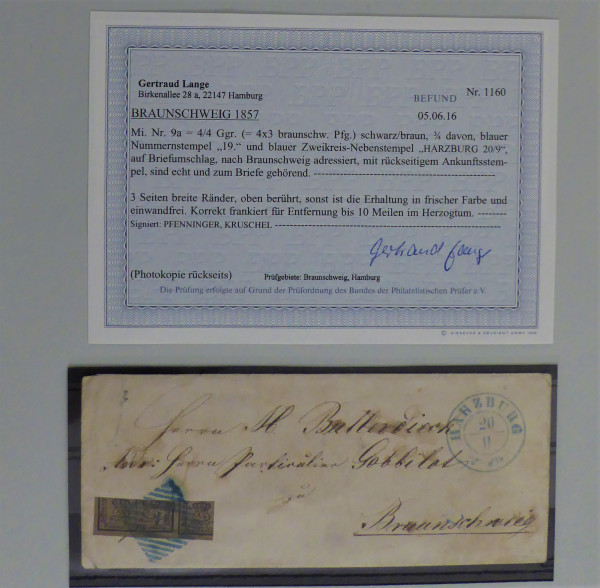 Gertraud Lange
Birkenallee 28 a, 22147 Hamburg
BEFUND Nr. 1160
BRAUNSCHWEIG 1857 05.06.16
Mi. Nr. 9a = 4/4 Ggr. (= 4x3 braunschw. Pfg.) schwarz/braun, ¾ davon, blauer
Nummernstempel „19.“ und blauer Zweikreis-Nebenstempel „HARZBURG 20/9“,
auf Briefumschlag, nach Braunschweig adressiert, mit rückseitigem Ankunftsstem-
pel, sind echt und zum Briefe gehörend.
3 Seiten breite Ränder, oben berührt, sonst ist die Erhaltung in frischer Farbe und
einwandfrei. Korrekt frankiert für Entfernung bis 10 Meilen im Herzogtum.
Signiert: PFENNINGER, KRUSCHEL
(Photokopie rückseits) Prüfgebiete: Braunschweig, Hamburg
Die Prüfung erfolgte auf Grund der Prüfordnung des Bundes der Philatelistischen Prüfer e.V.
HARZBURG
20
9
Herrn M Batterdieck
Adr: Herrn Particulier Gobbilot
zu
Braunschweig